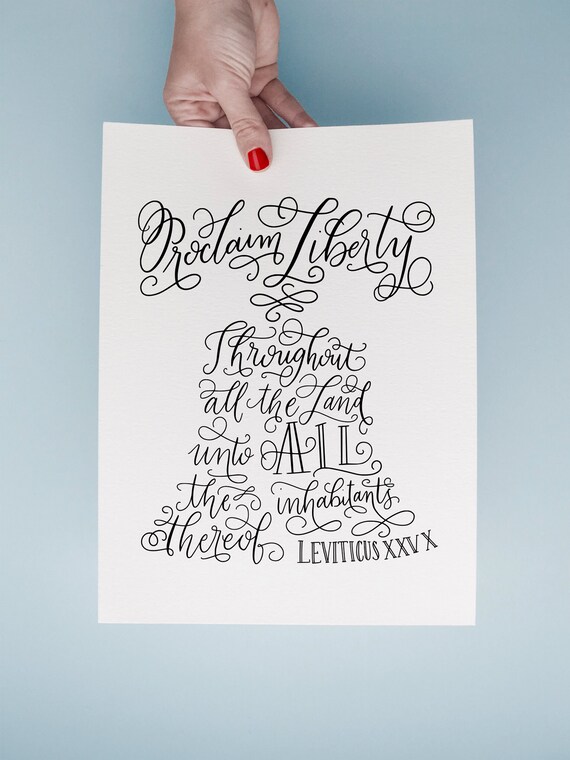 Proclaim Liberty
Throughout
all the Land
unto ALL
the inhabitants
thereof LEVITICUS XXV X